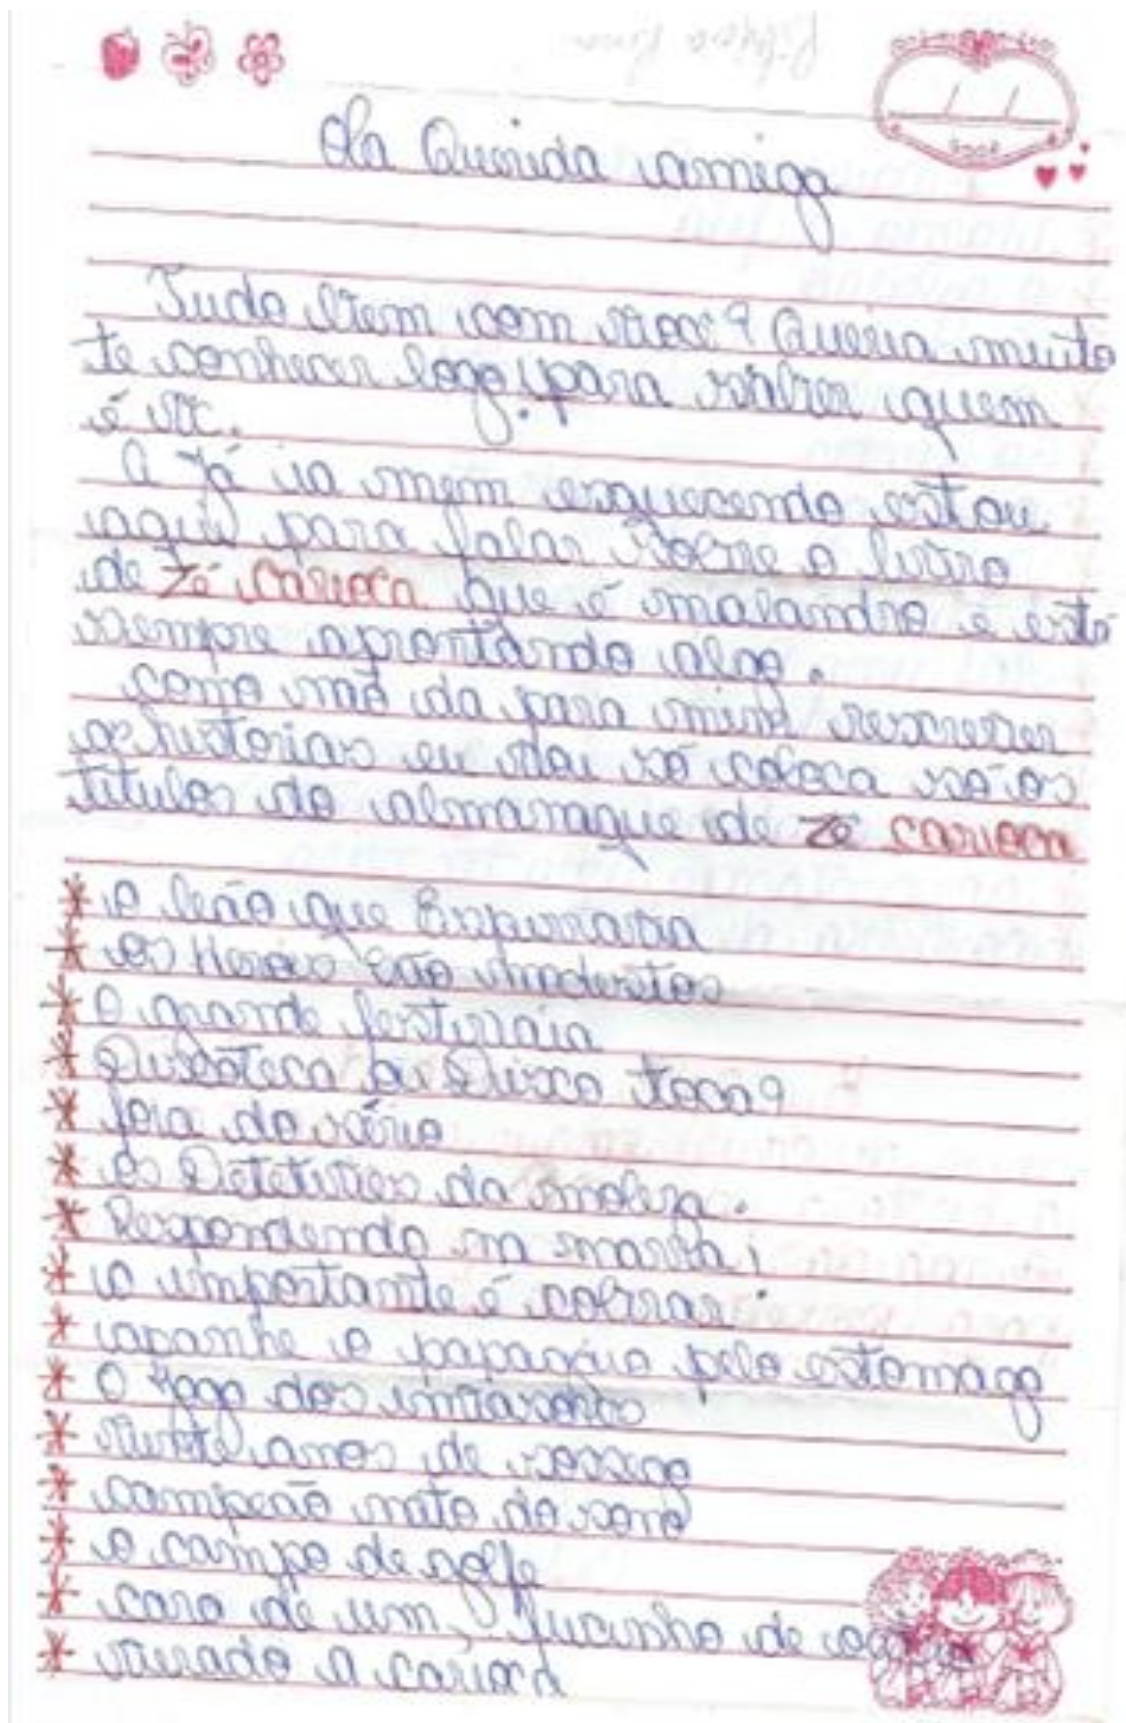 Ola Querida amiga
Tudo Bem com você? Queria muito
te conhecer logo, para saber quem
é vc.
A já ia mem esquecendo estou
aqui para falar sobre o livro
de Zé carioca que é malandro e está
sempre aprontando algo.
como não da para mim rescrever
as historias eu vou só coloca só os
titulos do almanaque de Zé carioca
* o leão que Espirrava
* os Herois são modestos
* O grande festival
* Discoteca ou Disco toca?
* fora do sério
* os Detetives da moleza.
* Respondendo na marra!
* o importante é cobrar!
* apanhe o papagaio pelo estomago
* O Jogo dos
* vinte anos de sossego
* campeão nato do sono
* o campo de golfe
* cara de um, fucinho de
* virado a carioca